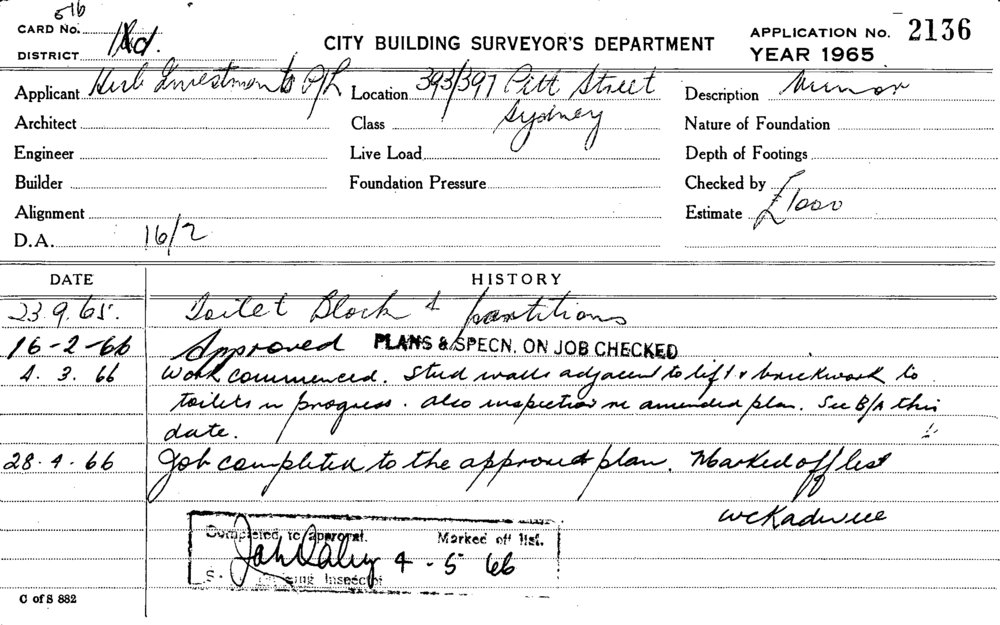 516
CARD No.
DISTRICT Rd.
CITY BUILDING SURVEYOR'S DEPARTMENT
APPLICATION No. 2136
YEAR 1965
Applicant Investments P/L
Location 393/397 Pitt Street
Sydney
Description Minor
Architect
Class
Nature of Foundation
Engineer
Live Load
Depth of Footings
Builder
Foundation Pressure
Checked by
Alignment
Estimate £1000
D.A. 16/2
DATE HISTORY
23.9.65. Toilet Block & partitions
16-2-66 Approved PLANS & SPECN. ON JOB CHECKED
4.3.66 Work commenced. Stud walls adjacent to lift & brickwork to
toilets in progress. Also inspection re amended plan. See B/A this
date.
28.4.66 Job completed to the approved plan. Marked off list
Completed to approval. Marked off list.
4-5 66
S. Inspector
C of S 882